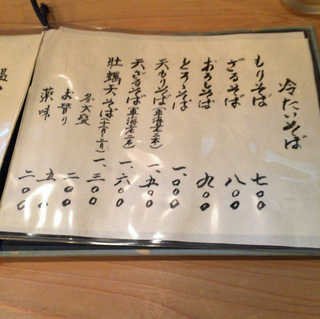 冷たいそば
もりそば 七〇〇
ざるそば 八〇〇
おろしそば 九〇〇
とろろそば 一、〇〇〇
天もりそば(車海老二本) 一、五〇〇
天ざるそば(車海老二本) 一、六〇〇
牡蠣天そば(十月〜二月) 一、三〇〇
各大盛 二〇〇
お替り 五〇〇
薬味 二〇〇